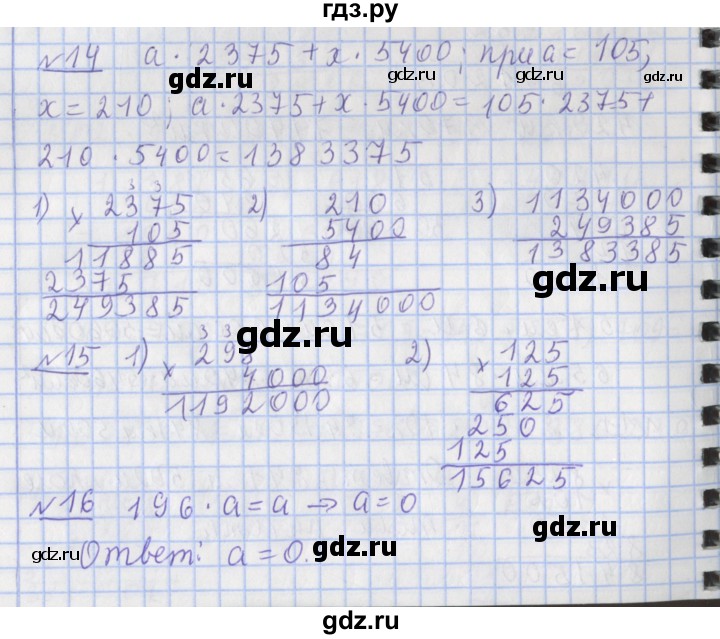 гдз.ру
№14 a · 2375 + x · 5400; при a = 105,
gdz.ru gdz.ru gdz.ru
x = 210; a · 2375 + x · 5400 = 105 · 2375 +
210 · 5400 = 1383375
1) 2) 3)
3 3
× 2375
105
11885
2375
249385
210
5400
84
105
1134000
1134000
249385
1383385
gdz.ru
gdz.ru
№15 1) 2)
3 3
× 298
4000
1192000
× 125
125
625
250
125
15625
gdz.ru
№16 196 · a = a → a = 0
gdz.ru
Ответ: a = 0.
gdz.ru
gdz.ru
gdz.ru